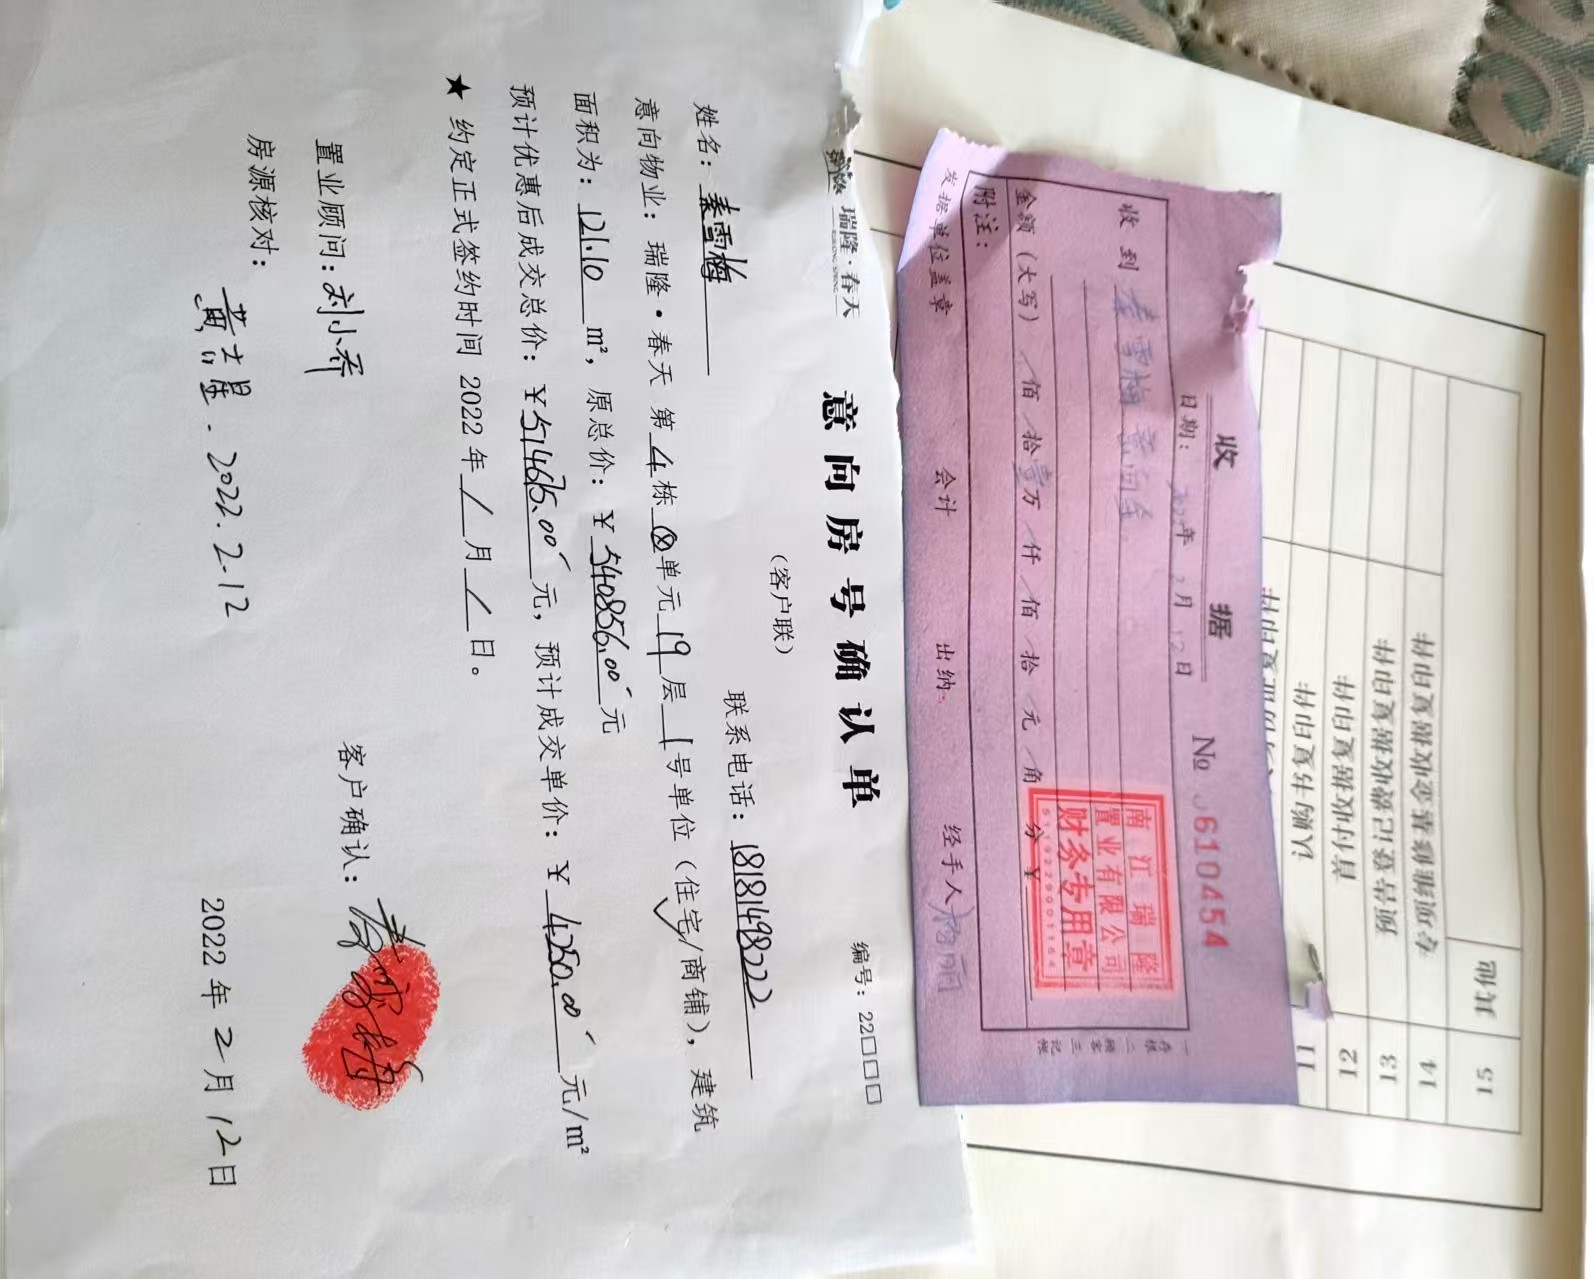 收 据
No 0610454
日期: 2022年 2月 12日
收到 秦雪梅 意向金
金额(大写) / 佰 / 拾 壹 万 / 仟 / 佰 / 拾 / 元 / 角 / 分 ¥
附注:
发据单位盖章 会计 出纳: 经手人
一存根 二顾客 三记帐
南江瑞隆
置业有限公司
财务专用章
瑞隆·春天
意向房号确认单
编号: 22□□□
(客户联)
姓名: 秦雪梅 联系电话: 18181498222
意向物业: 瑞隆·春天 第 4 栋 单元 19 层 1 号单位 (住宅/商铺), 建筑
面积为: 121.10 m², 原总价: ¥ 540856.00 元
预计优惠后成交总价: ¥ 514675.00 元, 预计成交单价: ¥ 4250.00 元/m²
★ 约定正式签约时间 2022 年 / 月 / 日。
置业顾问: 刘小乔 客户确认: 秦雪梅
房源核对:
2022.2.12
2022 年 2 月 12 日
11 认购书复印件
12 首付收据复印件
13 预告登记费收据复印件
14 专项维修基金收据复印件
15 其他